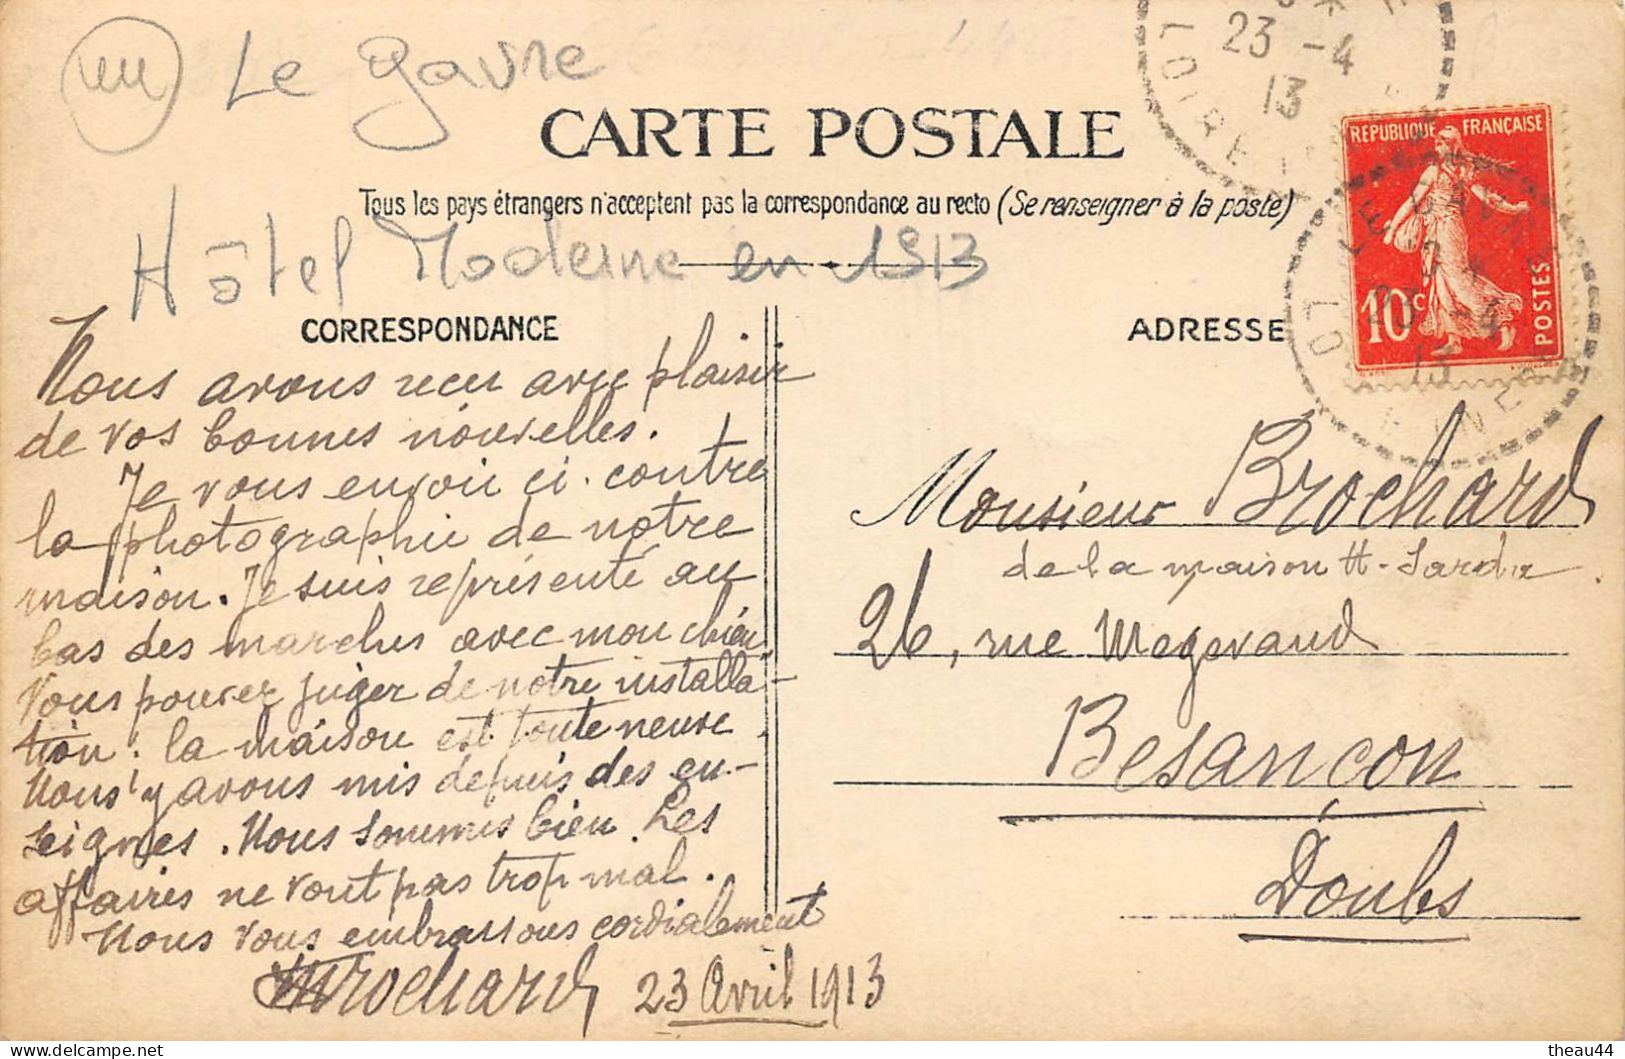 44
Le gavre
CARTE POSTALE
Tous les pays étrangers n'acceptent pas la correspondance au recto (Se renseigner à la poste)
Hôtel Moderne en 1913
CORRESPONDANCE
Nous avons reçu avec plaisir
de vos bonnes nouvelles.
Je vous envoie ci-contre
la photographie de notre
maison. Je suis représenté au
bas des marches avec mon chien.
Vous pouvez juger de notre installa-
tion: la maison est toute neuve.
Nous y avons mis depuis des en-
seignes. Nous sommes bien. Les
affaires ne vont pas trop mal.
Nous vous embrassons cordialement
Brochard 23 Avril 1913
ADRESSE
Monsieur Brochard
de la maison H.
26, rue Megevand
Besançon
Doubs
REPUBLIQUE FRANÇAISE
10c
POSTES
23 -4
13
LOIRE
LE GAVRE
23 -4
13
theau44